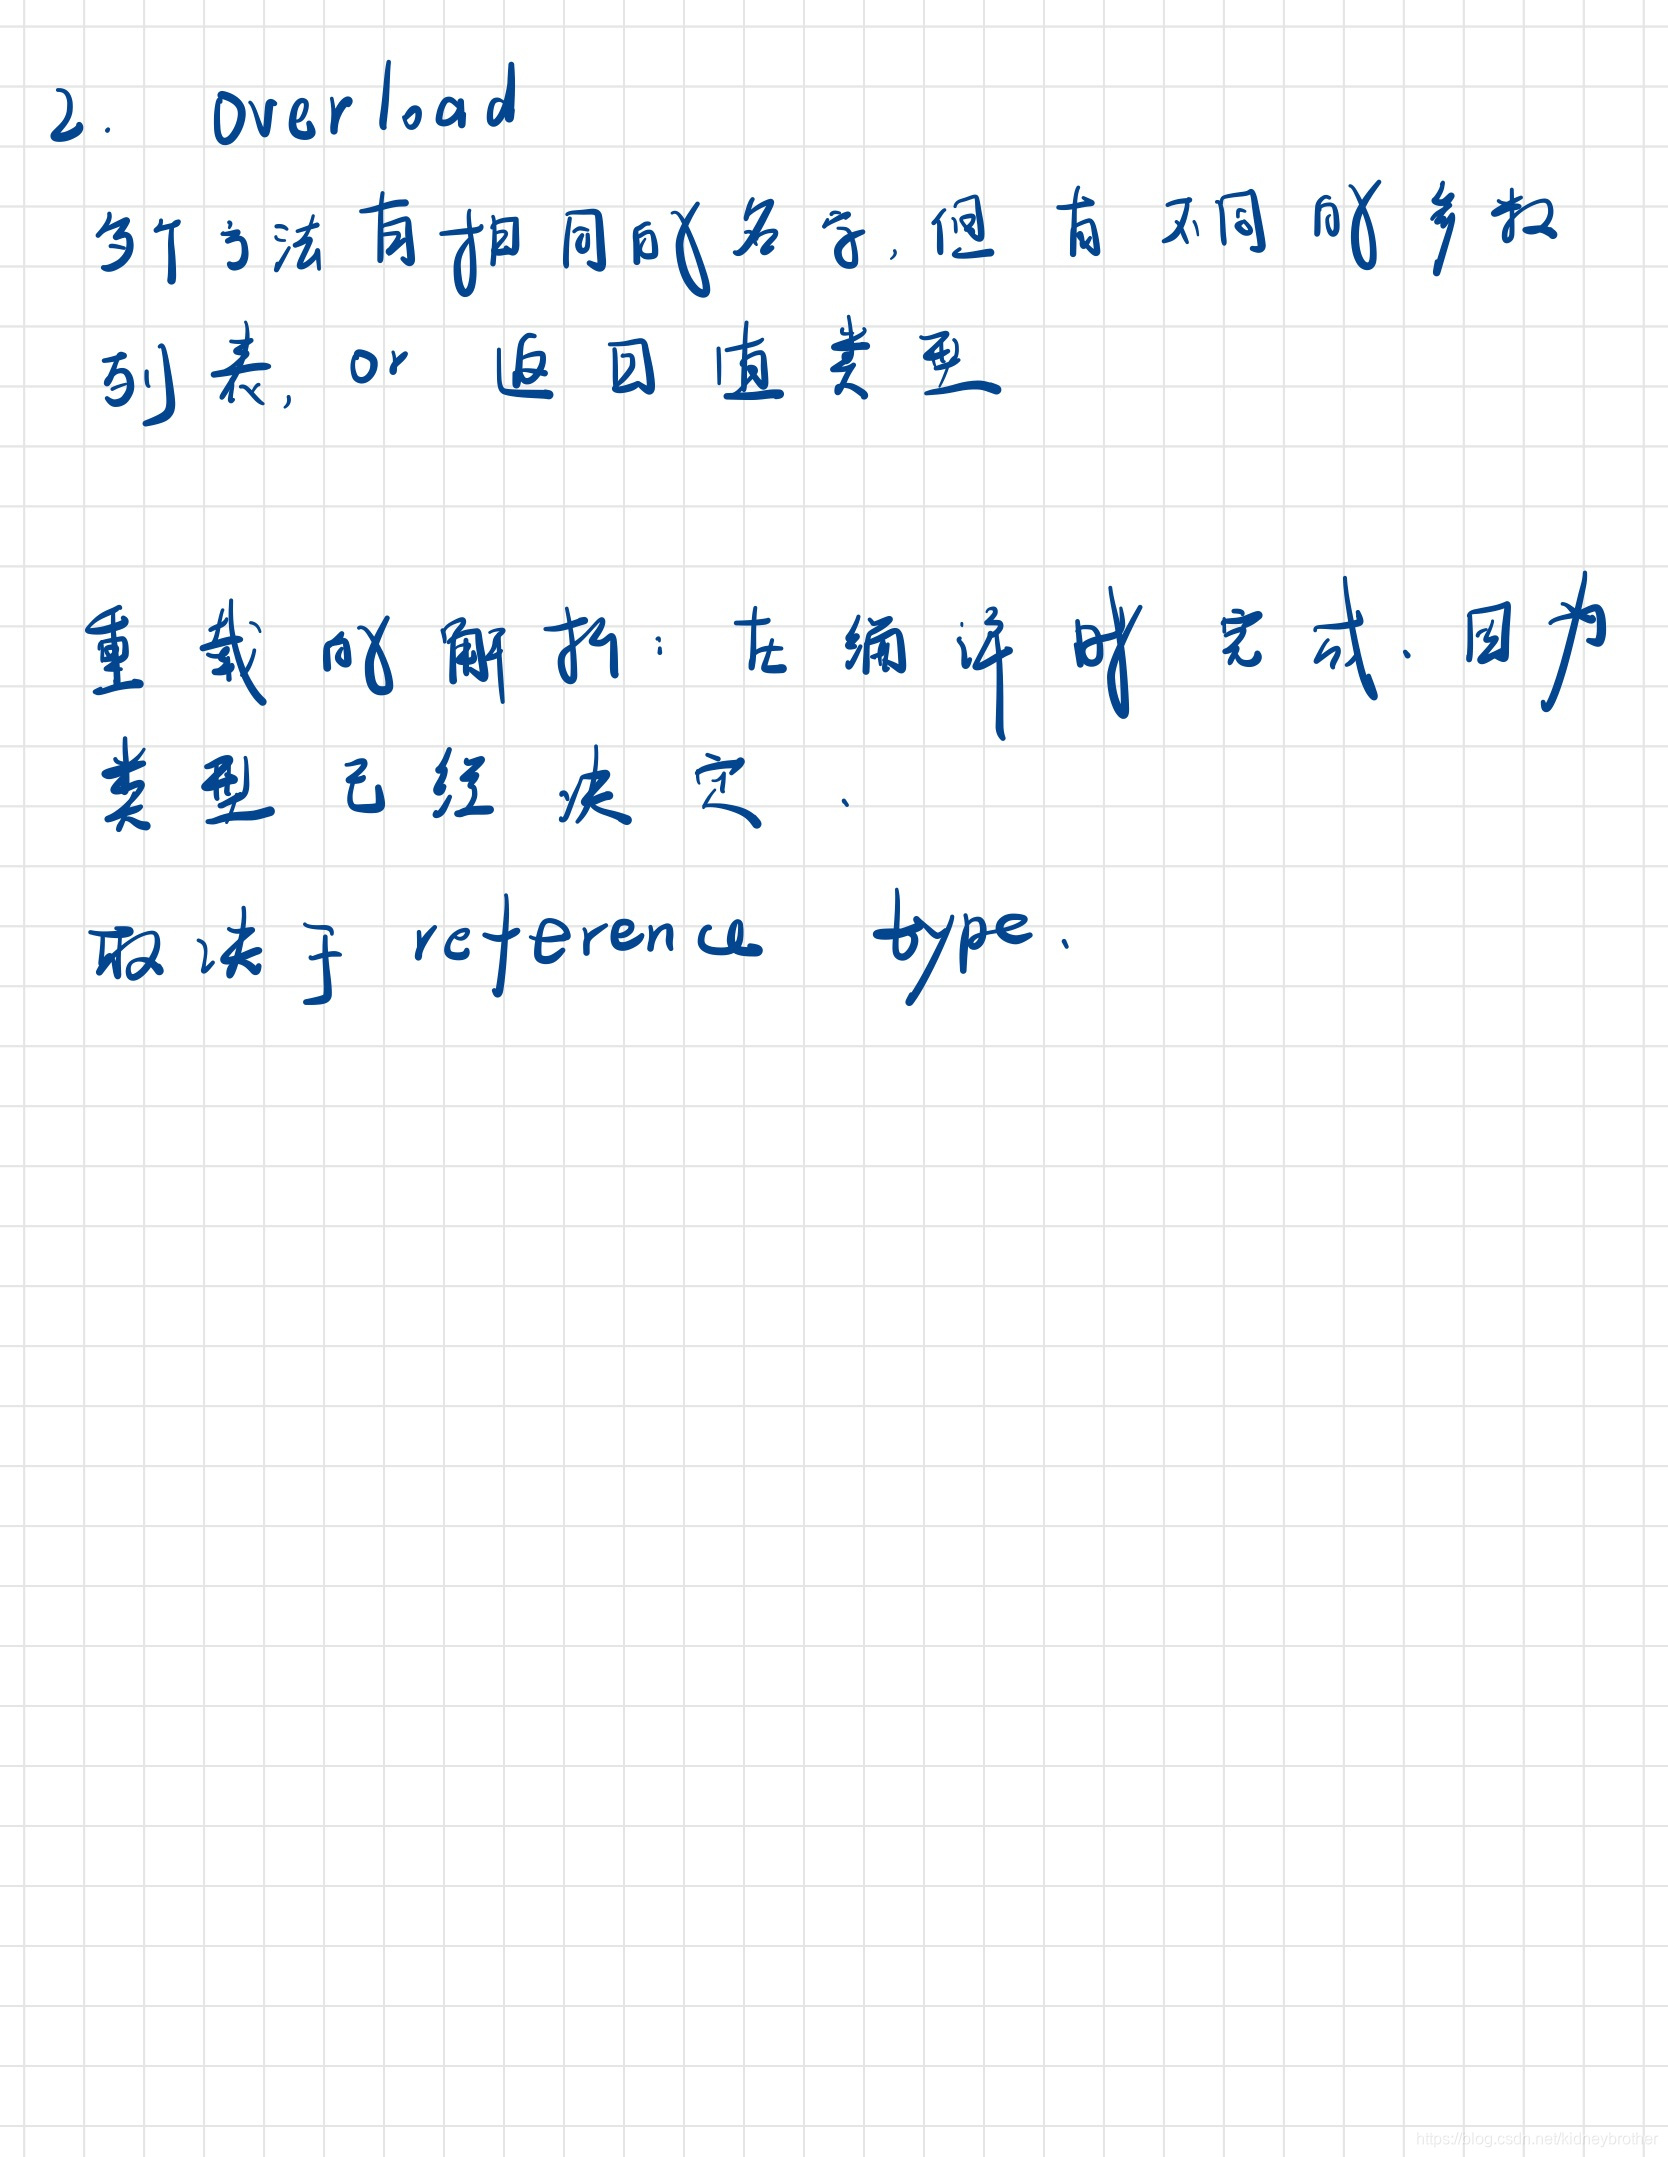 2. Overload
多个方法有相同的名字,但有不同的参数
列表, or 返回值类型
重载的解析:在编译时完成.因为
类型已经决定.
取决于 reference type.
https://blog.csdn.net/kidneybrother